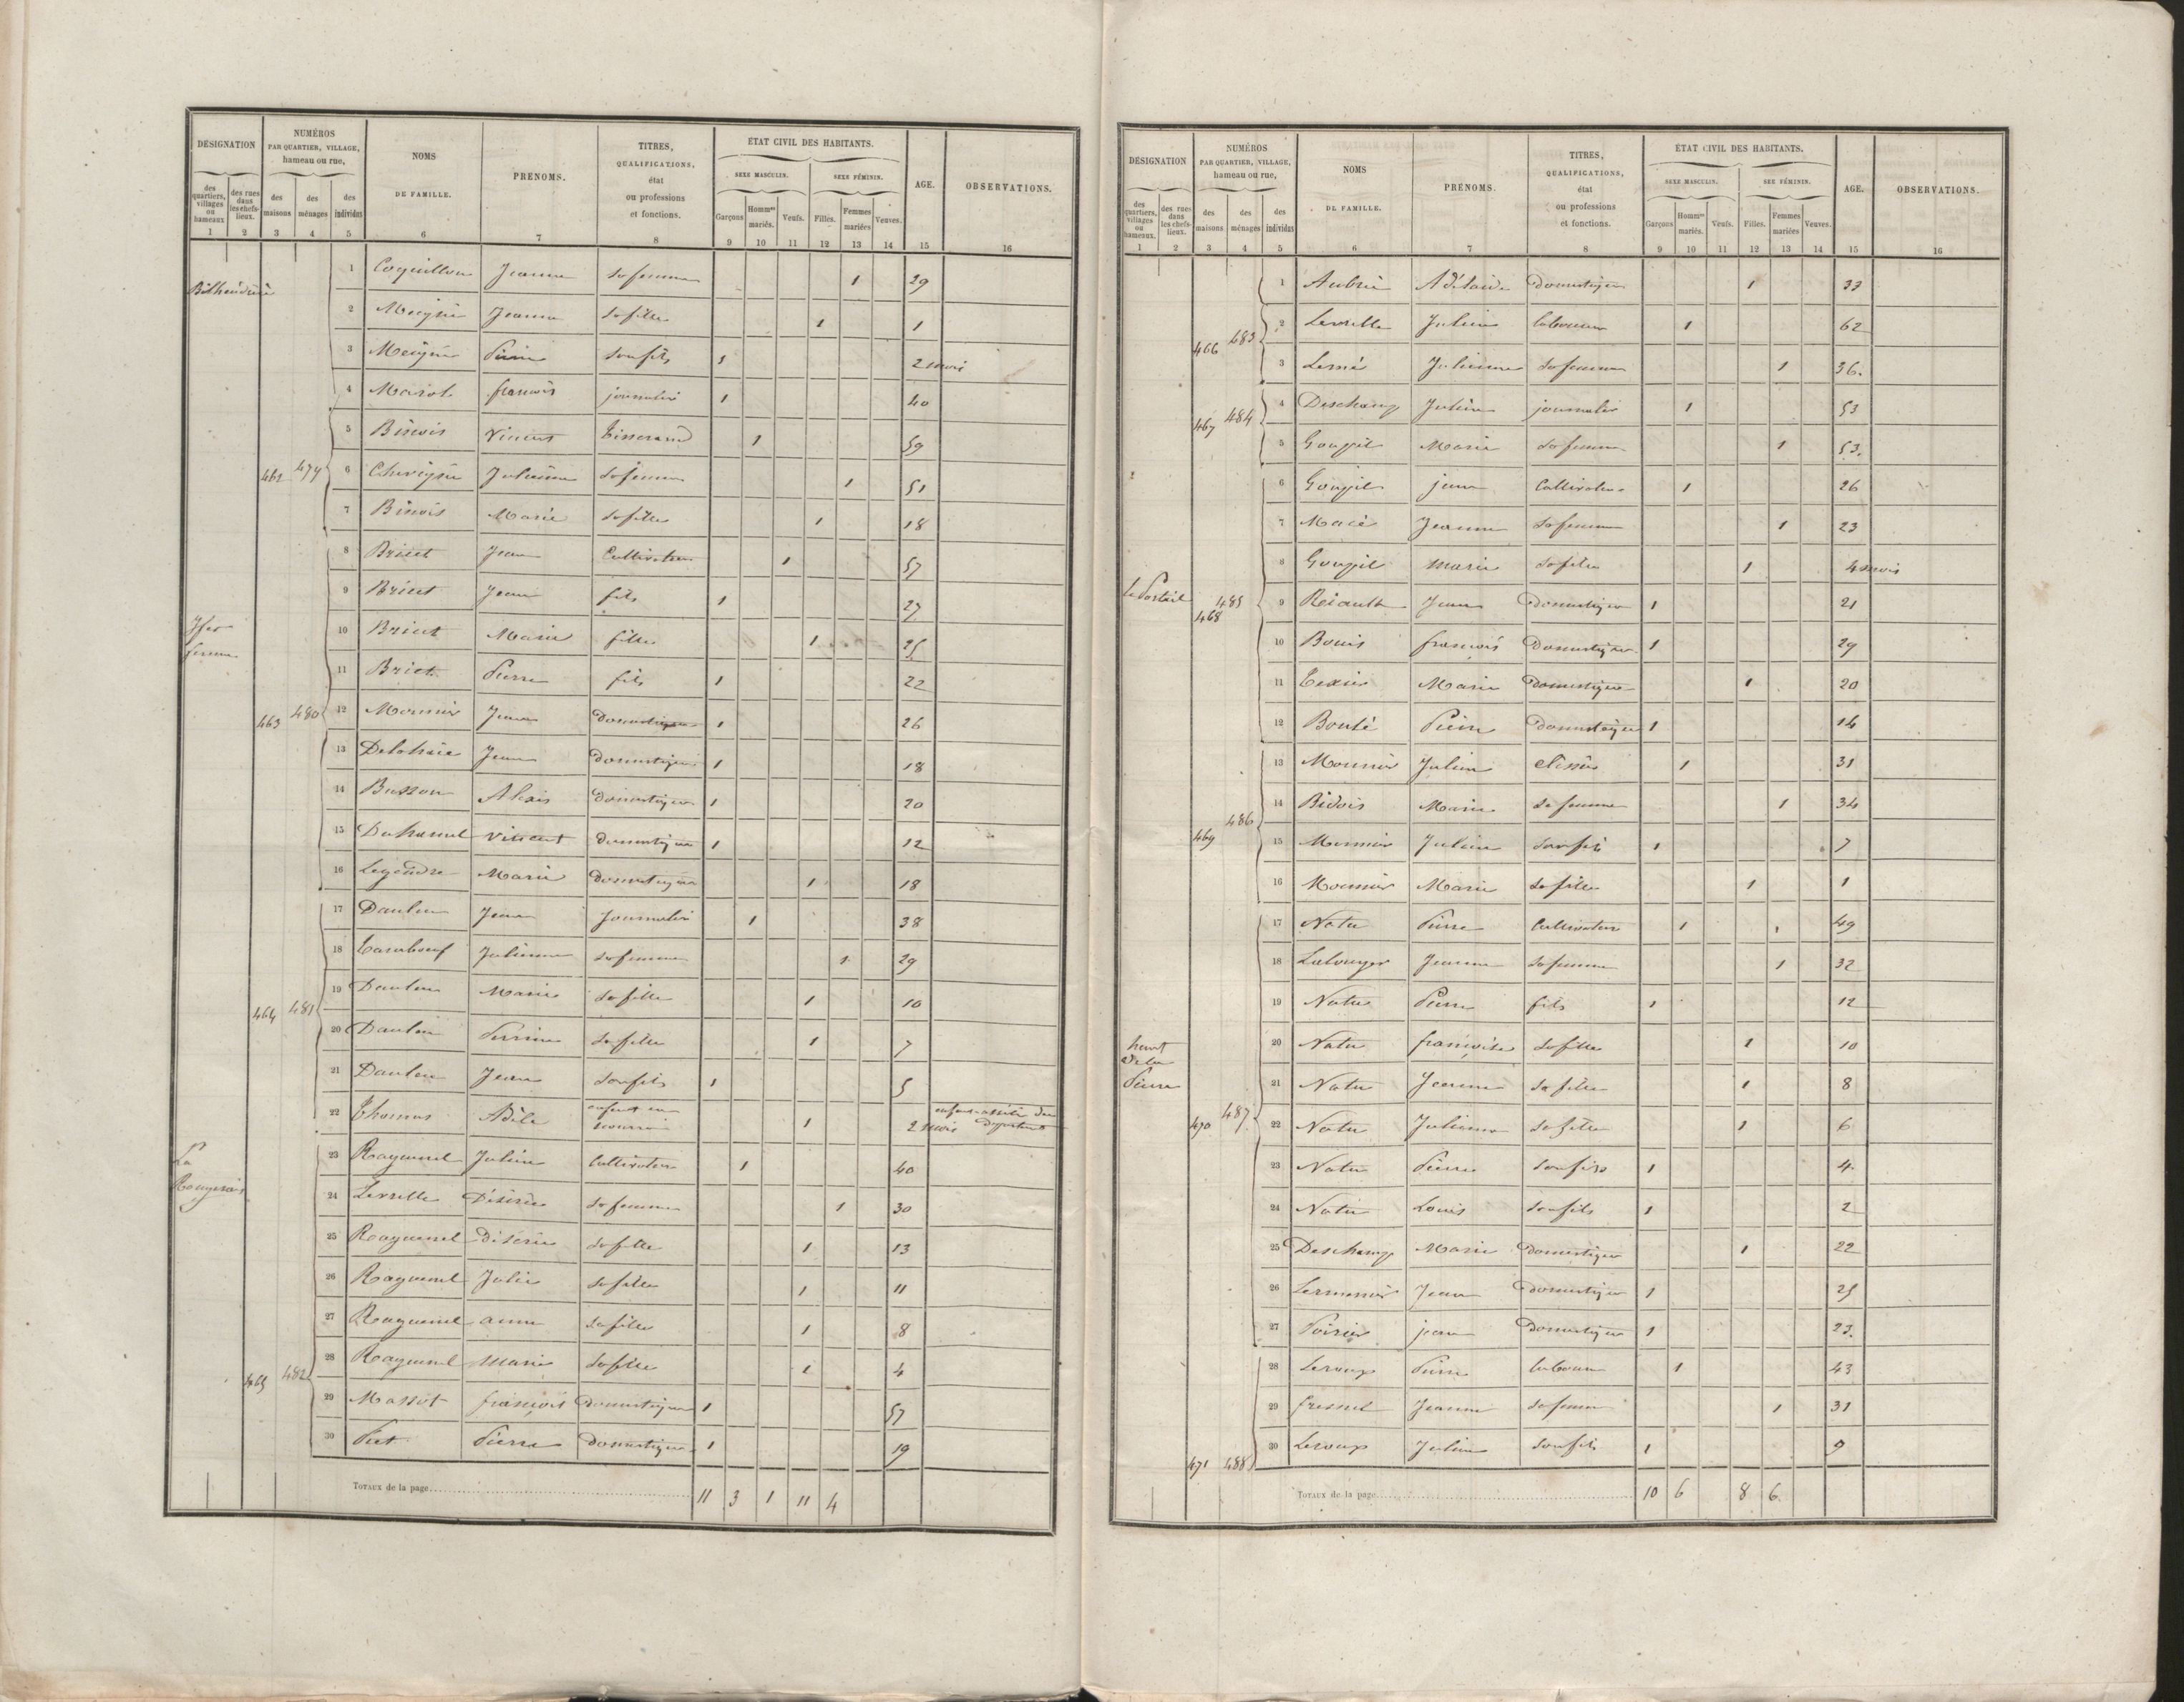 DÉSIGNATION NUMÉROS PAR QUARTIER, VILLAGE, hameau ou rue, NOMS DE FAMILLE. PRÉNOMS. TITRES, QUALIFICATIONS, état ou professions et fonctions. ÉTAT CIVIL DES HABITANTS. AGE. OBSERVATIONS.
des quartiers, villages ou hameaux des rues dans les chefs-lieux. des maisons des ménages des individus SEXE MASCULIN. SEXE FÉMININ.
Garçons Hommes mariés. Veufs. Filles. Femmes mariées Veuves.
1 2 3 4 5 6 7 8 9 10 11 12 13 14 15 16
1 Coquillon Jeanne sa femme 1 29
2 Jeanne sa fille 1 1
3 son fils 1 2 mois
4 françois journalier 1 40
5 Binois Vincent Tisserand 1 59
462 479 6 Julienne sa femme 1 51
7 Binois Marie sa fille 1 18
8 Briet Jean Cultivateur 1 57
9 Briet Jean fils 1 27
10 Briet Marie fille 1 25
11 Briet Pierre fils 1 22
463 480 12 Monnier Jean Domestique 1 26
13 Delahaie Jean Domestique 1 18
14 Busson Alexis Domestique 1 20
15 Duhamel Vincent domestique 1 12
16 Legendre Marie Domestique 1 18
17 Dauleu Jean Journalier 1 38
18 Tamboeuf Julienne sa femme 1 29
464 481 19 Dauleu Marie sa fille 1 10
20 Dauleu Perrine sa fille 1 7
21 Dauleu Jean son fils 1 5
22 Thomas Adèle enfant en 1 2 mois
La
23 Raguenel Julien Cultivateur 1 40
24 Levrelle Désirée sa femme 1 30
25 Raguenel Désirée sa fille 1 13
26 Raguenel Julie sa fille 1 11
27 Raguenel anne sa fille 1 8
465 482 28 Raguenel Marie sa fille 1 4
29 Massot françois Domestique 1 57
30 Piet Pierre Domestique 1 19
TOTAUX de la page 11 3 1 11 4
DÉSIGNATION NUMÉROS PAR QUARTIER, VILLAGE, hameau ou rue, NOMS DE FAMILLE. PRÉNOMS. TITRES, QUALIFICATIONS, état ou professions et fonctions. ÉTAT CIVIL DES HABITANTS. AGE. OBSERVATIONS.
des quartiers, villages ou hameaux. des rues dans les chefs-lieux. des maisons des ménages des individus SEXE MASCULIN. SEXE FÉMININ.
Garçons Hommes mariés. Veufs. Filles. Femmes mariées Veuves.
1 2 3 4 5 6 7 8 9 10 11 12 13 14 15 16
1 Aubrée Adélaïde Domestique 1 33
466 483 2 Levrelle Julien laboureur 1 62
3 Lemé Julienne sa femme 1 36.
467 484 4 Deschamp Julien journalier 1 53
5 Goupil Marie sa femme 1 53.
6 Goupil jean Cultivateur 1 26
7 Macé Jeanne sa femme 1 23
8 Goupil Marie sa fille 1 4 mois
le Portail 468 485 9 Reiault Jean Domestique 1 21
10 Bouis françois Domestique 1 29
11 Texier Marie Domestique 1 20
12 Boulé Pierre Domestique 1 14
13 Monnier Julien 1 31
14 Bidois Marie sa femme 1 34
469 486 15 Monnier Julien son fils 1 7
16 Monnier Marie sa fille 1 1
17 Natu Pierre Cultivateur 1 49
18 Jeanne sa femme 1 32
19 Natu Pierre fils 1 12
20 Natu françoise sa fille 1 10
haut
de la
Pierre
21 Natu Jeanne sa fille 1 8
470 487 22 Natu Julienne sa fille 1 6
23 Natu Pierre son fils 1 4
24 Natu Louis son fils 1 2
25 Deschamp Marie Domestique 1 22
26 Lermenier Jean Domestique 1 25
27 Poirier jean Domestique 1 23.
28 Leroux Pierre laboureur 1 43
29 fresnel Jeanne sa femme 1 31
471 488 30 Leroux Julien son fils 1 9
TOTAUX de la page 10 6 8 6.